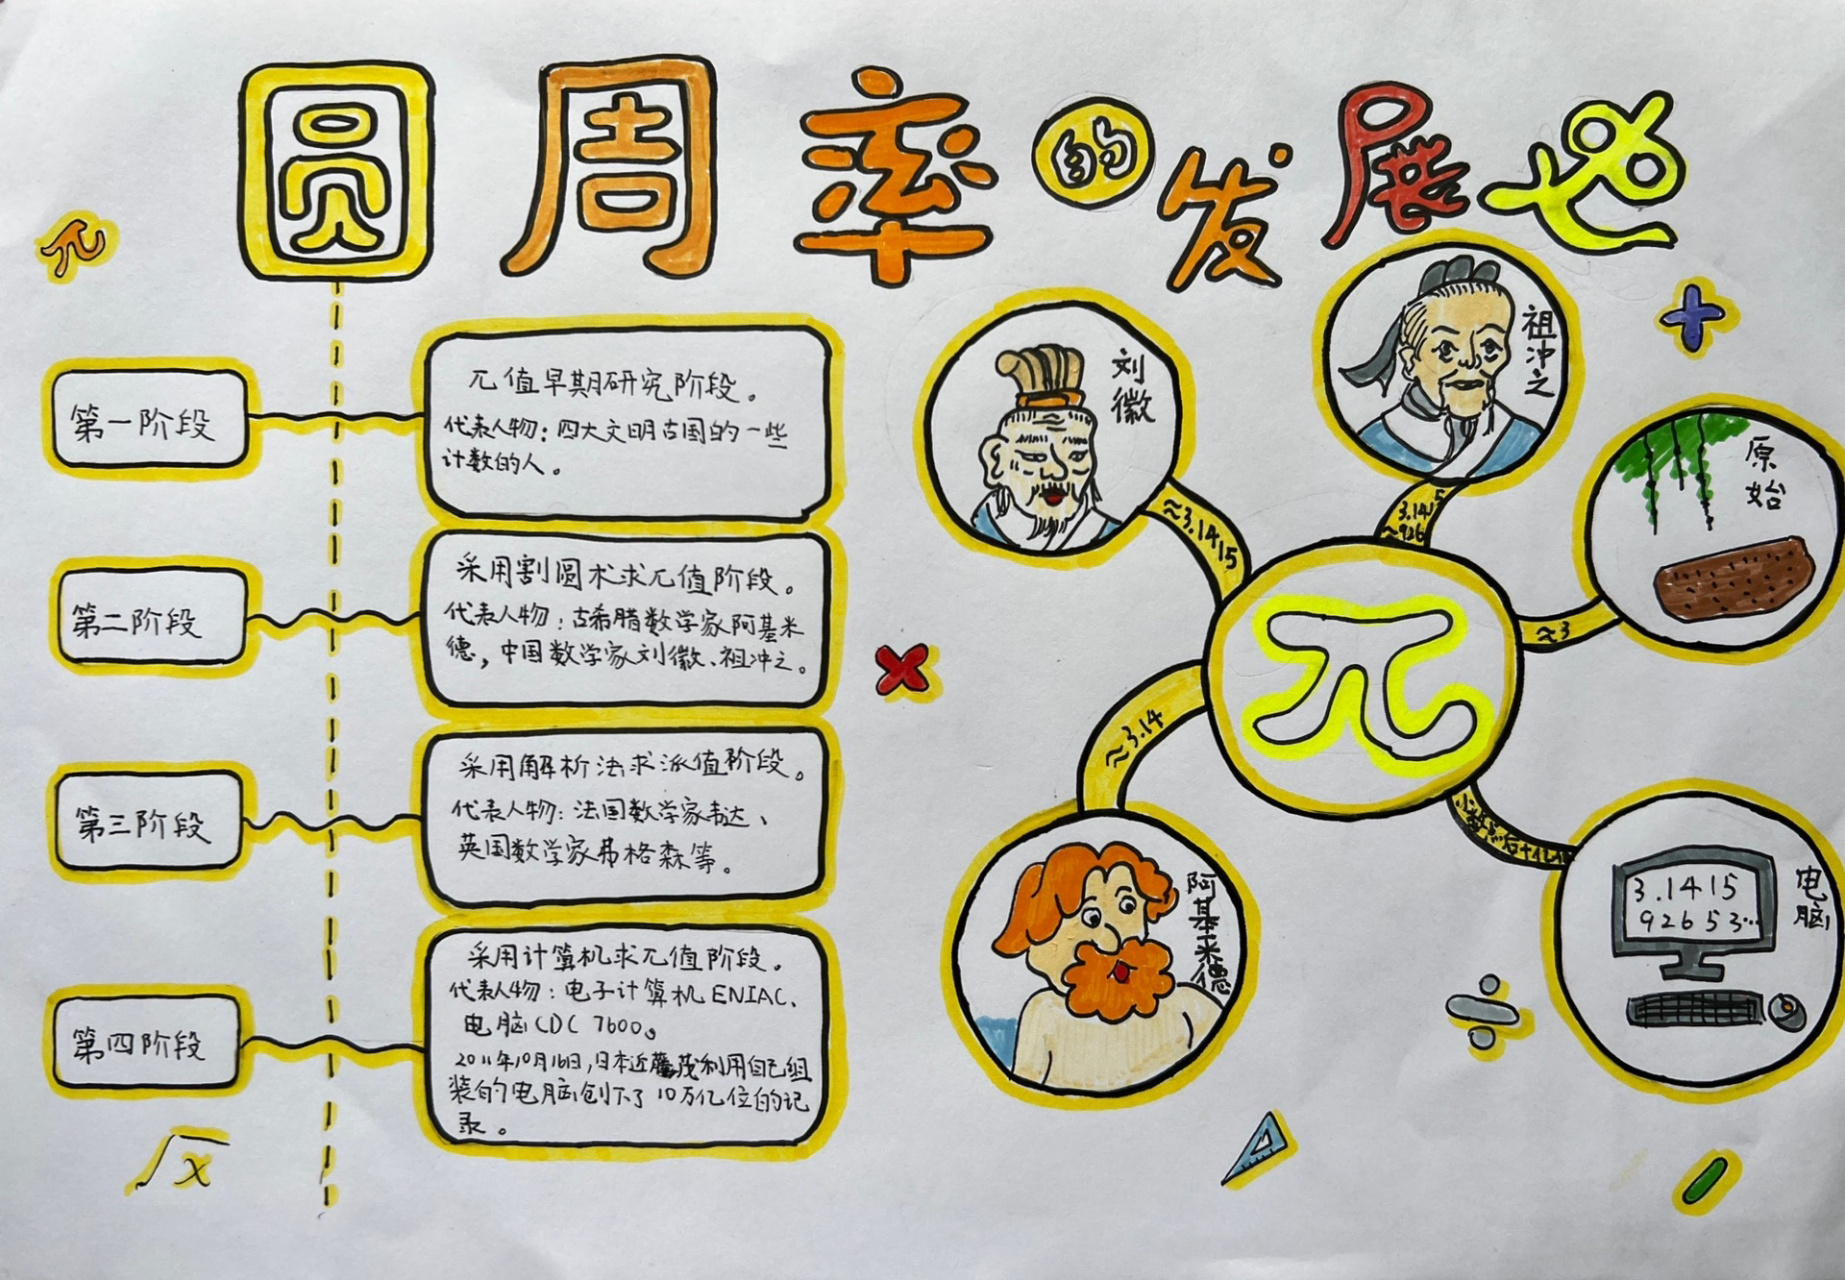 圆周率的发展史
π
第一阶段
π值早期研究阶段。
代表人物：四大文明古国的一些
计数的人。
第二阶段
采用割圆术求π值阶段。
代表人物：古希腊数学家阿基米
德，中国数学家刘徽、祖冲之。
第三阶段
采用解析法求派值阶段。
代表人物：法国数学家韦达、
英国数学家弗格森等。
第四阶段
采用计算机求π值阶段。
代表人物：电子计算机ENIAC、
电脑CDC 7600。
2011年10月16日，日本近藤茂利用自己组
装的电脑创下了10万亿位的记
录。
√x
刘徽
≈3.1415
祖冲之
3.1415
≈926
原始
≈3
π
≈3.14
阿基米德
小数点后十亿
电脑
3.1415
92653…